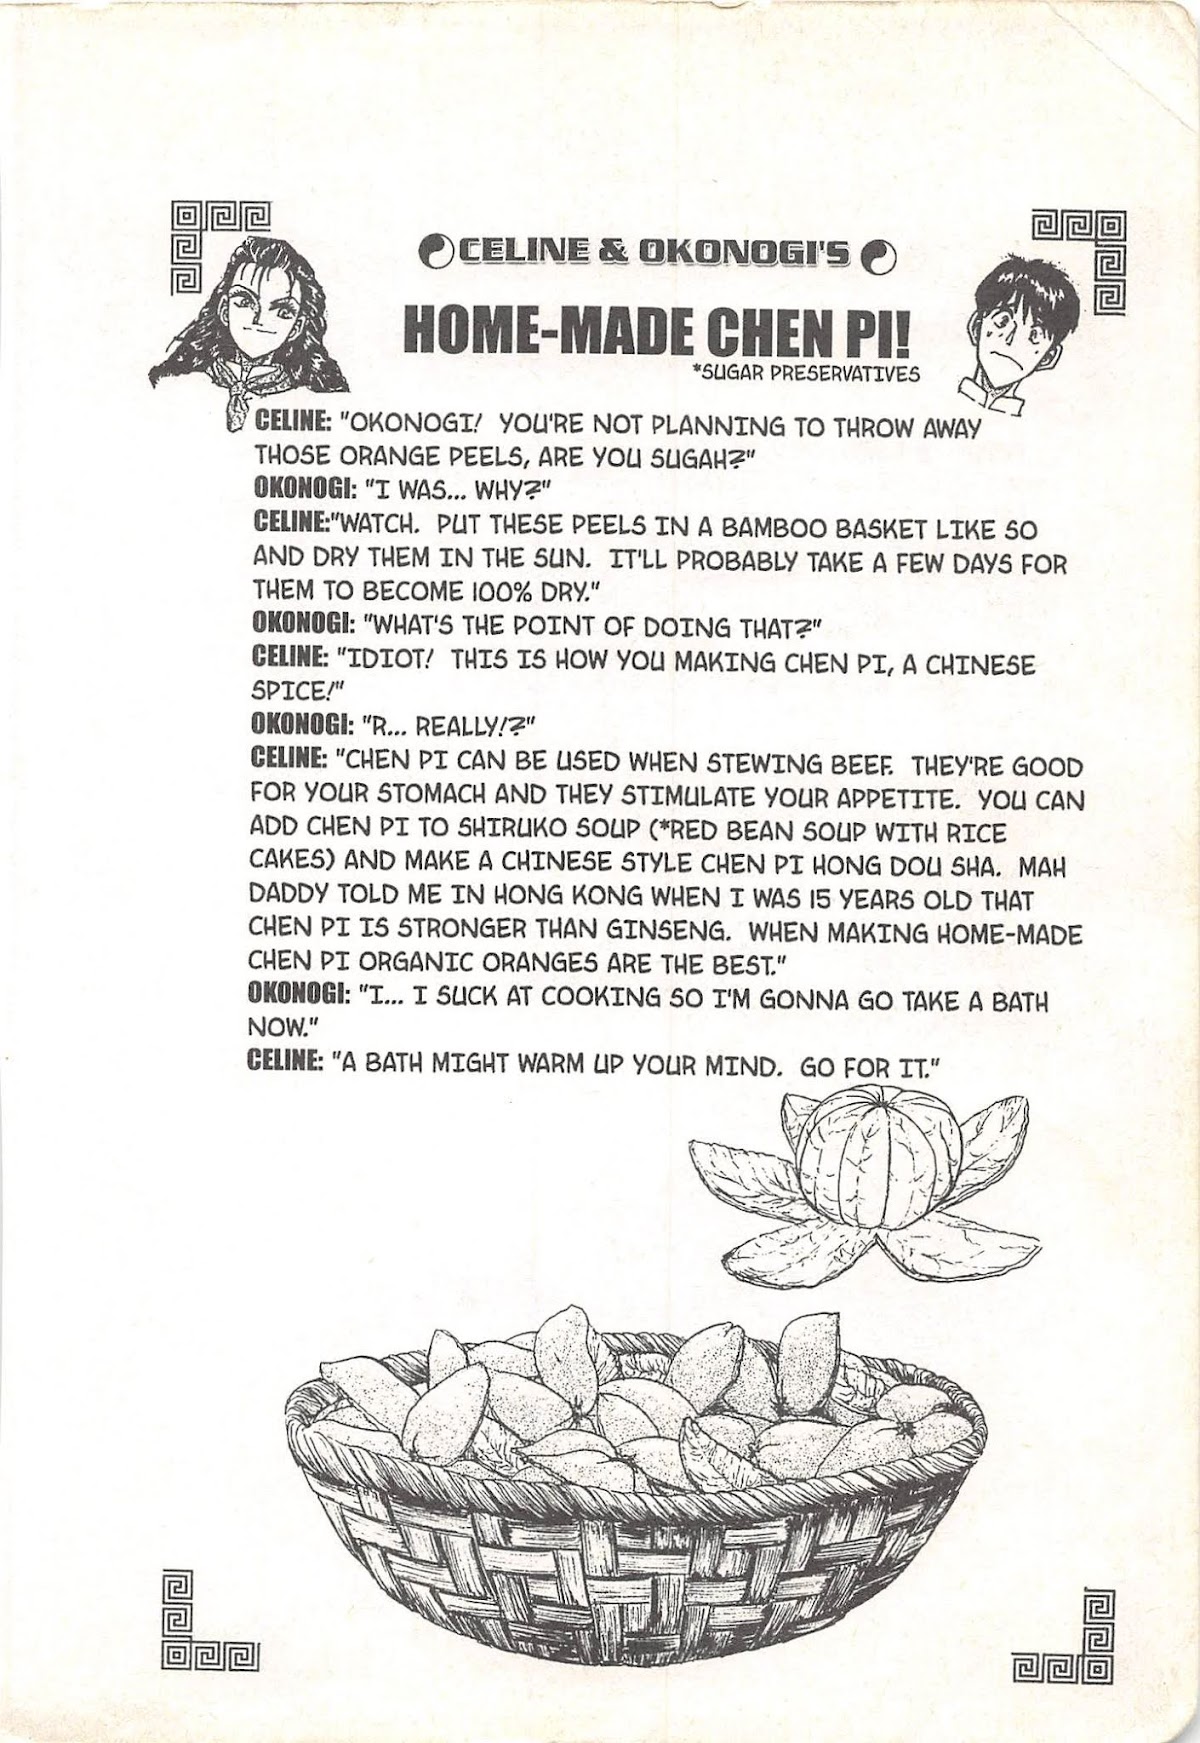 CELINE & OKONOGI'S
HOME-MADE CHEN PI!
*SUGAR PRESERVATIVES
CELINE: "OKONOGI! YOU'RE NOT PLANNING TO THROW AWAY
THOSE ORANGE PEELS, ARE YOU SUGAH?"
OKONOGI: "I WAS... WHY?"
CELINE:"WATCH. PUT THESE PEELS IN A BAMBOO BASKET LIKE SO
AND DRY THEM IN THE SUN. IT'LL PROBABLY TAKE A FEW DAYS FOR
THEM TO BECOME 100% DRY."
OKONOGI: "WHAT'S THE POINT OF DOING THAT?"
CELINE: "IDIOT! THIS IS HOW YOU MAKING CHEN PI, A CHINESE
SPICE!"
OKONOGI: "R... REALLY!?"
CELINE: "CHEN PI CAN BE USED WHEN STEWING BEEF. THEY'RE GOOD
FOR YOUR STOMACH AND THEY STIMULATE YOUR APPETITE. YOU CAN
ADD CHEN PI TO SHIRUKO SOUP (*RED BEAN SOUP WITH RICE
CAKES) AND MAKE A CHINESE STYLE CHEN PI HONG DOU SHA. MAH
DADDY TOLD ME IN HONG KONG WHEN I WAS 15 YEARS OLD THAT
CHEN PI IS STRONGER THAN GINSENG. WHEN MAKING HOME-MADE
CHEN PI ORGANIC ORANGES ARE THE BEST."
OKONOGI: "I... I SUCK AT COOKING SO I'M GONNA GO TAKE A BATH
NOW."
CELINE: "A BATH MIGHT WARM UP YOUR MIND. GO FOR IT."